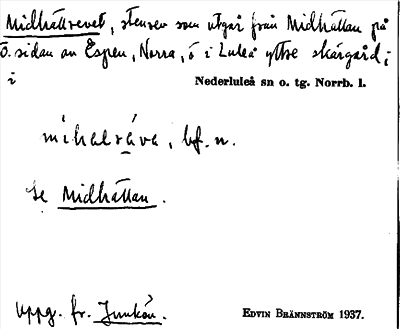 Midhällrevet, stenrev som utgår från Midhällan på
ö. sidan av Espen, Norra, ö i Luleå yttre skärgård;
i Nederluleå sn o. tg. Norrb. l.
mihalráva, bf. n.
Se Midhällan.
Uppg. fr. Junkön. EDVIN BRÄNNSTRÖM 1937.